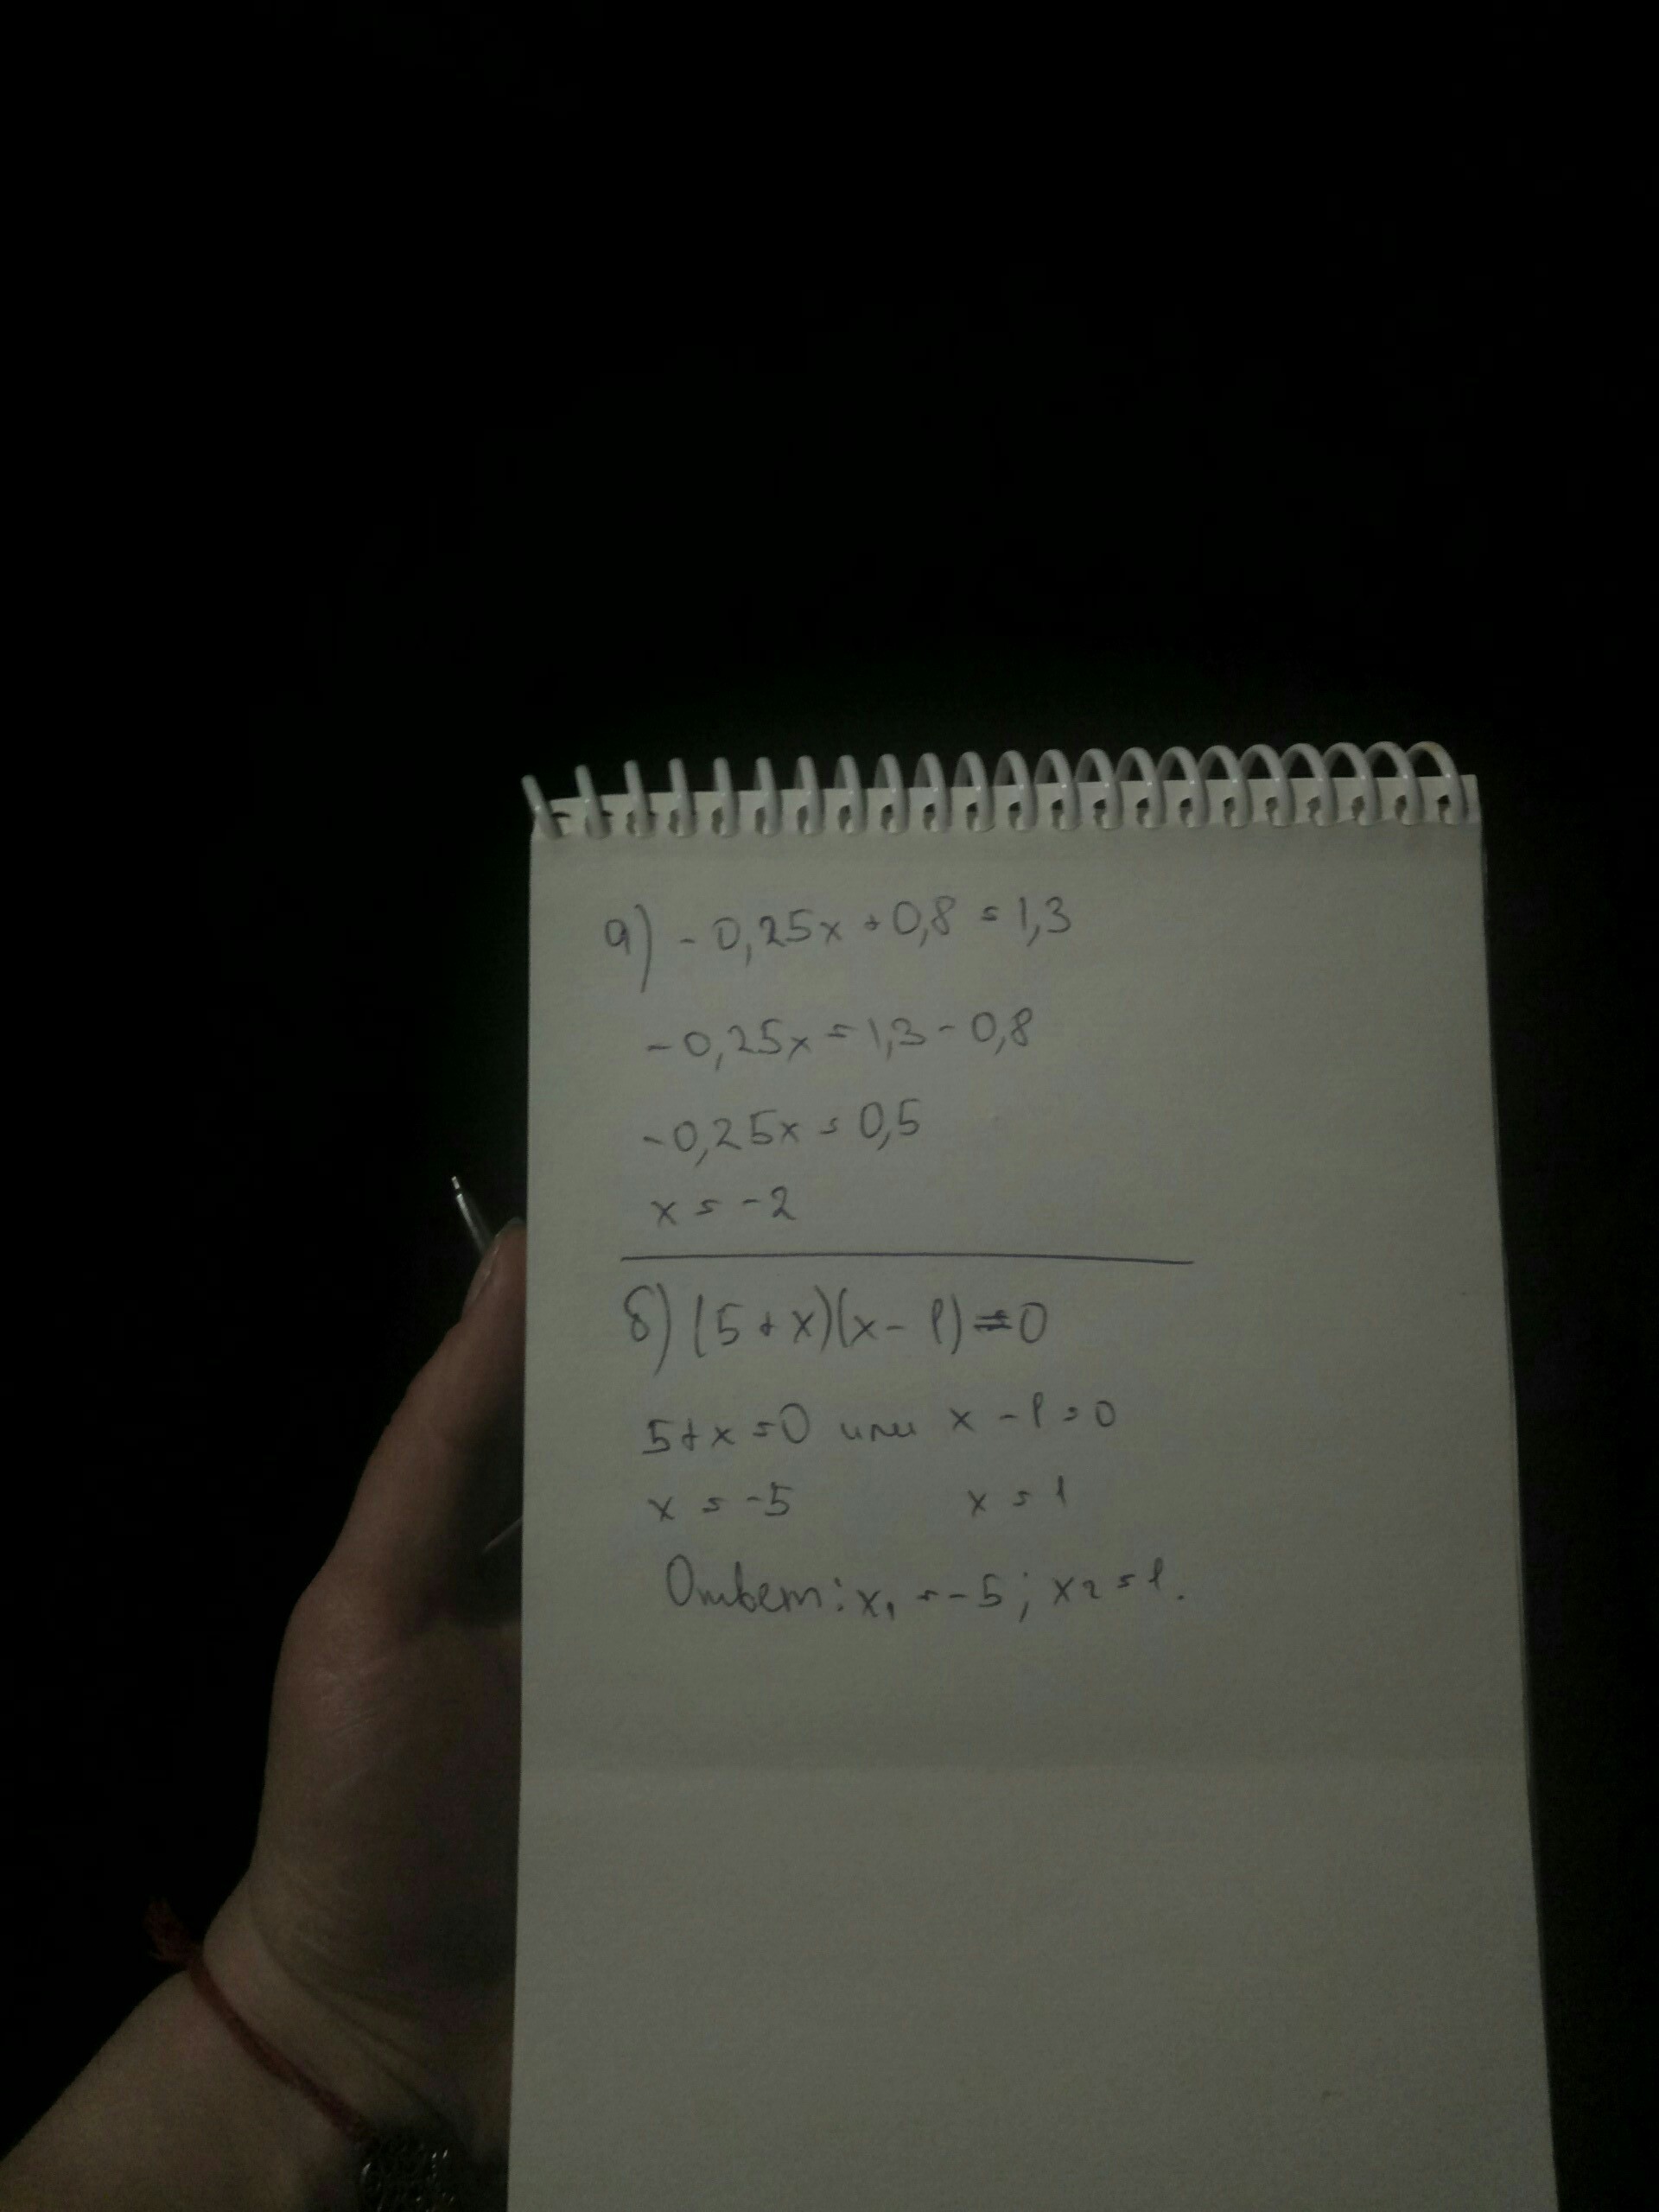 а) - 0,25x + 0,8 = 1,3
- 0,25x = 1,3 - 0,8
- 0,25x = 0,5
x = -2
б) (5 + x)(x - 1) = 0
5 + x = 0 или x - 1 = 0
x = -5 x = 1
Ответ: x₁ = -5; x₂ = 1.